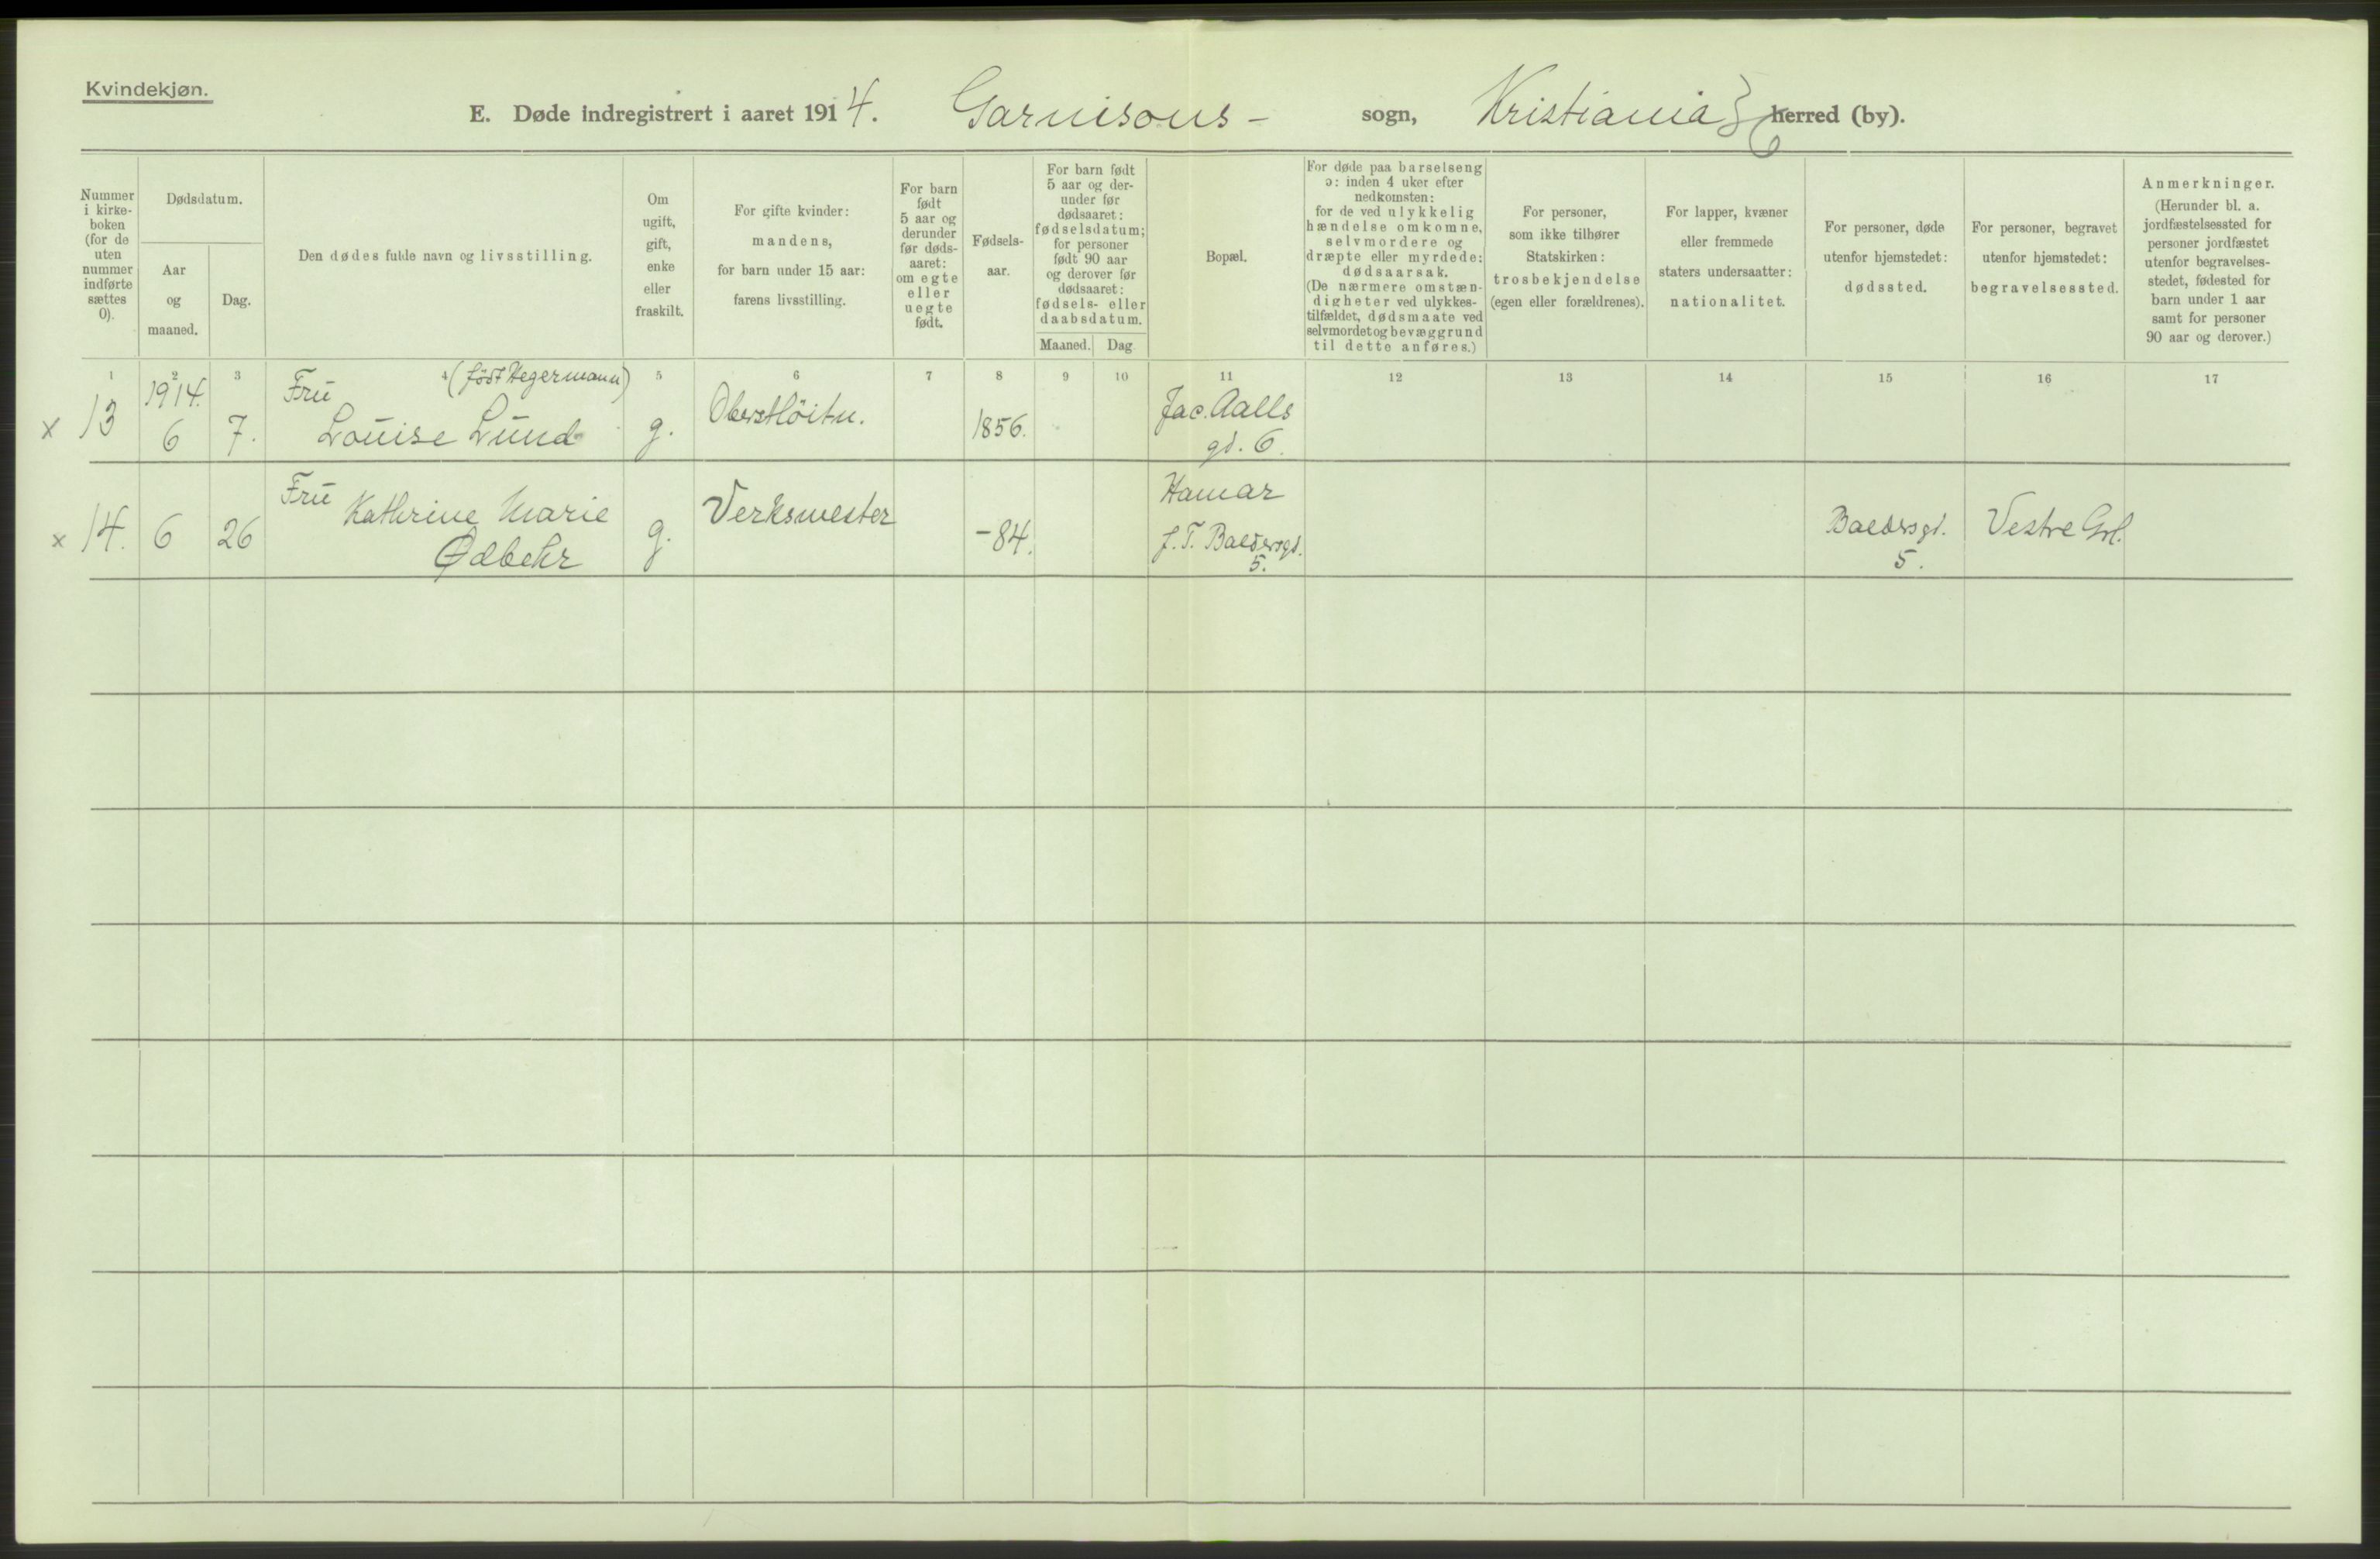 Kvindekjøn.
E. Døde indregistrert i aaret 1914. Garnisons- sogn, Kristiania herred (by).
Nummer
i kirke-
boken
(for de
uten
nummer
indførte
sættes
0).
Dødsdatum.
Aar
og
maaned.
Dag.
Den dødes fulde navn og livsstilling.
Om
ugift,
gift,
enke
eller
fraskilt.
For gifte kvinder:
mandens,
for barn under 15 aar:
farens livsstilling.
For barn
født
5 aar og
derunder
før døds-
aaret:
om egte
eller
uegte
født.
Fødsels-
aar.
For barn født
5 aar og der-
under før
dødsaaret:
fødselsdatum;
for personer
født 90 aar
og derover før
dødsaaret:
fødsels- eller
daabsdatum.
Maaned.
Dag
Bopæl.
For døde paa barselseng
ɔ: inden 4 uker efter
nedkomsten:
for de ved ulykkelig
hændelse omkomne,
selvmordere og
dræpte eller myrdede:
dødsaarsak.
(De nærmere omstæn-
digheter ved ulykkes-
tilfældet, dødsmaate ved
selvmordet og bevæggrund
til dette anføres.)
For personer,
som ikke tilhører
Statskirken:
trosbekjendelse
(egen eller forældrenes).
For lapper, kvæner
eller fremmede
staters undersaatter:
nationalitet.
For personer, døde
utenfor hjemstedet:
dødssted.
For personer, begravet
utenfor hjemstedet:
begravelsessted.
Anmerkninger.
(Herunder bl. a.
jordfæstelsessted for
personer jordfæstet
utenfor begravelses-
stedet, fødested for
barn under 1 aar
samt for personer
90 aar og derover.)
1 2 3 4 5 6 7 8 9 10 11 12 13 14 15 16 17
x 13
1914.
6
7.
Fru (født Hegermann)
Louise Lund
g.
Oberstløitn.
1856.
Jac. Aalls
gd. 6.
x 14.
6
26
Fru
Kathrine Marie
Ødbehr
g.
Verksmester
-84.
Hamar
f. T. Baldersgd.
5.
Baldersgd.
5.
Vestre Grl.